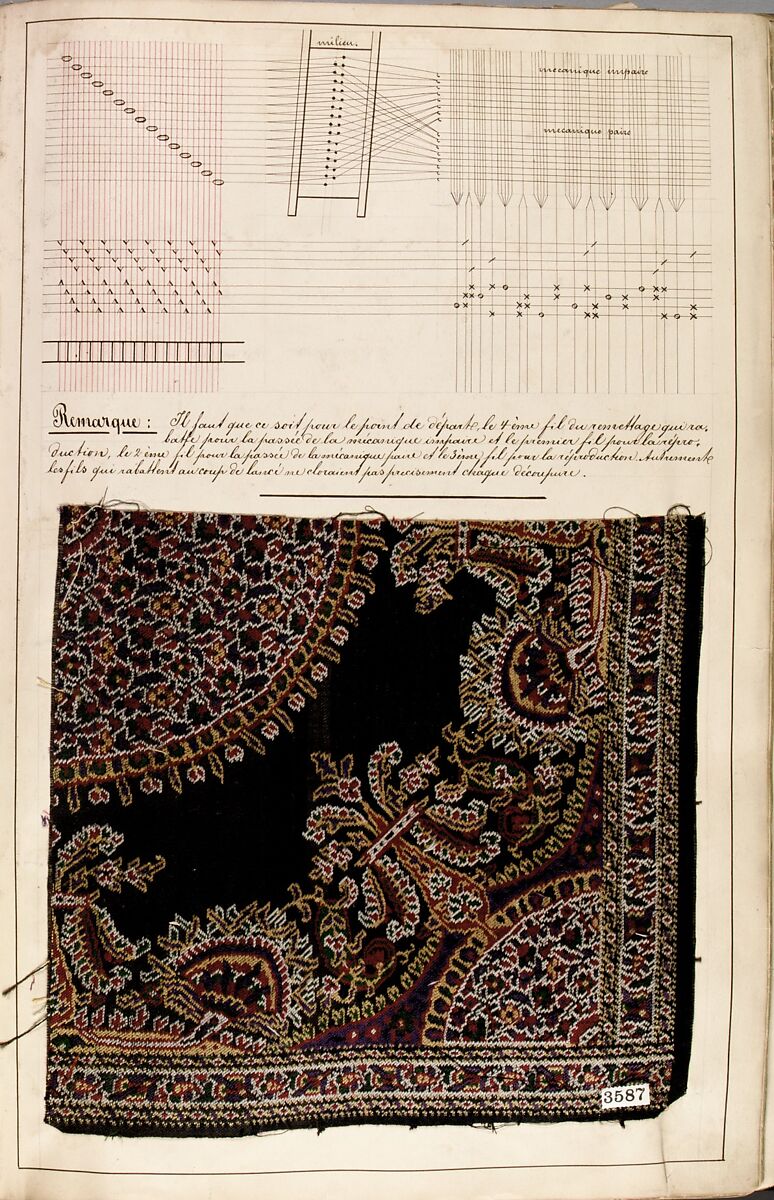 milieu.
mécanique impaire
mécanique paire
Remarque : Il faut que ce soit pour le point de départ, le 4ème fil du remettage qui ra=
batte pour la passée de la mécanique impaire et le premier fil pour la répro=
duction, le 2ème fil pour la passée de la mécanique paire et le 3ème fil pour la réproduction. Autrement
les fils qui rabattent au coup de lancé ne cloraient pas precisement chaque découpure.
3587